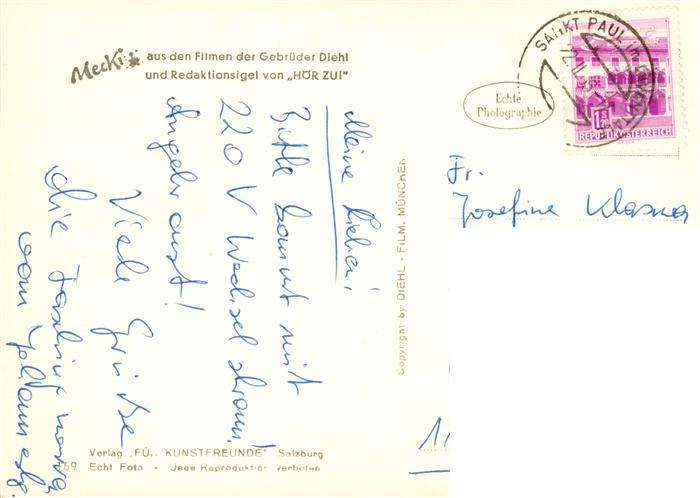 Mecki aus den Filmen der Gebrüder Diehl
und Redaktionsigel von „HÖR ZU!"
SANKT PAUL im
Echte
Photographie
1.S 20
REPUBLIK ÖSTERREICH
Meine Lieben!
Bitte kommt mit
220 V Wechselstrom!
Angebraust!
Viele Grüße
die
vom
Copyright by DIEHL - FILM, MÜNCHEN
Fr.
Josefine
Verlag „FÜR KUNSTFREUNDE" Salzburg
469 Echt Foto - Jede Reproduktion verboten